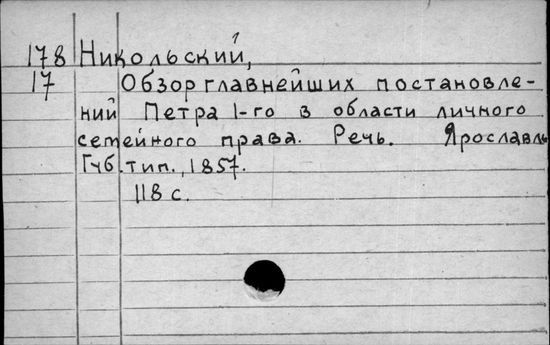 178 Никольский,
17 Обзор главнейших постановле-
ний Петра I-го в области личного
семейного права. Речь. Ярославль
Губ. тип., 1857.
118 с.